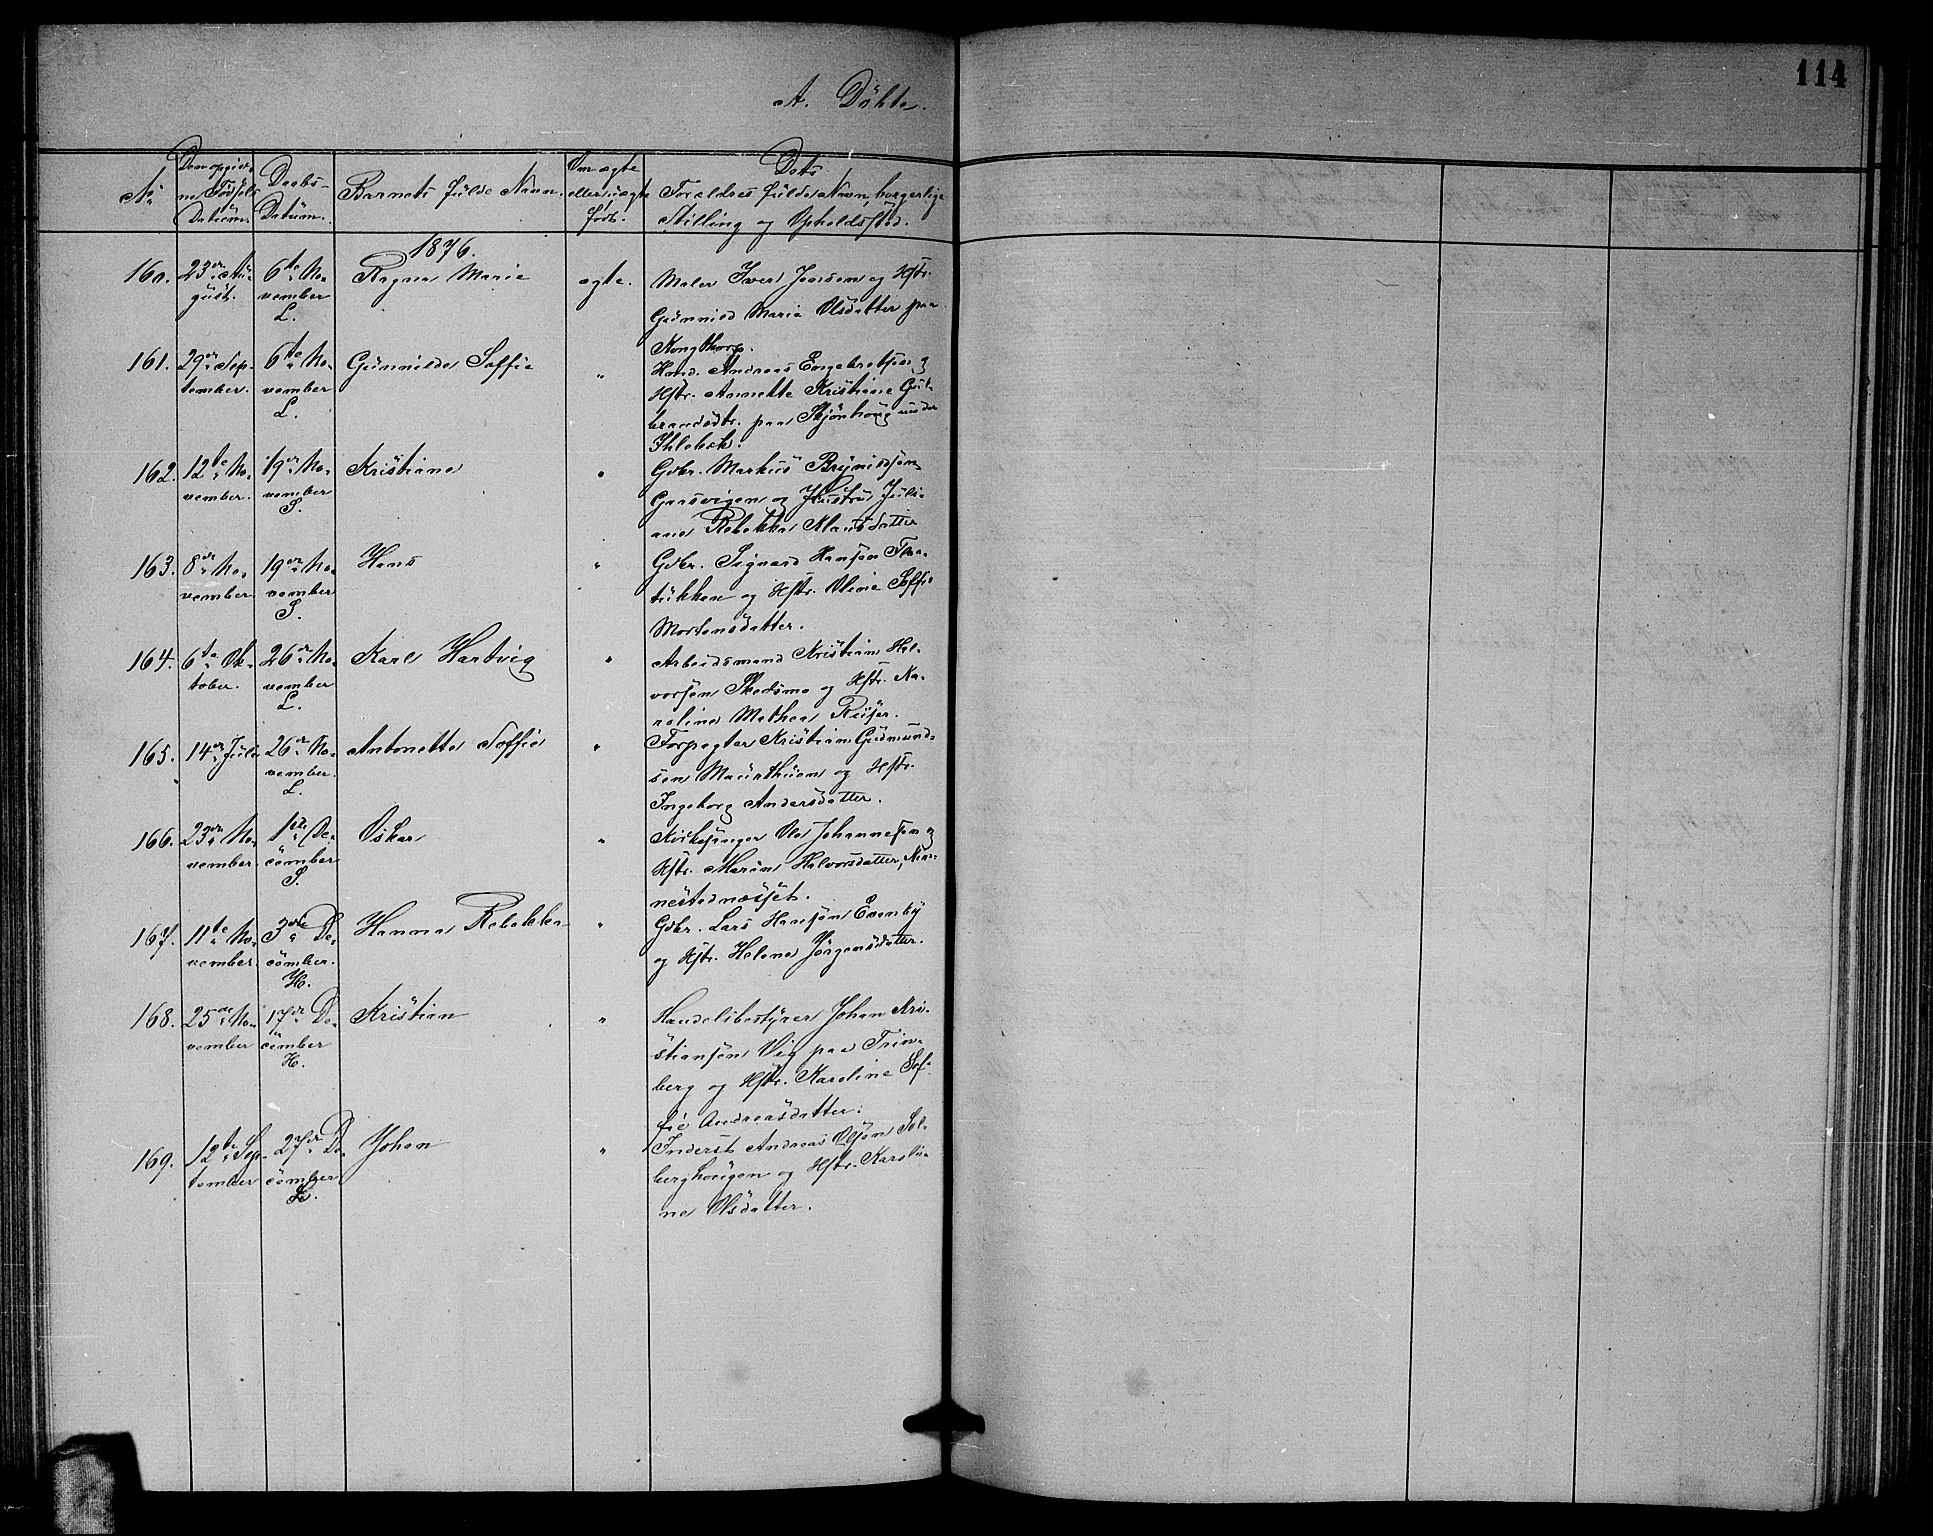 114
A. Döbte.
No
Den opgivne Födsels Datum.
Daabs-Datum.
Barnets fulde Navn.
Om ægte eller uægte født.
Dets Forældres fulde Navn, borgerlige Stilling og Opholdssted.
1876.
160. 23de August. 6te November L. Ragna Marie ægte. Maler Iver Jensen og Hstr.
Marie Olsdatter paa
Kongthorp.
161. 29de September. 6te November L. Gunnilde Soffie " Hmd. Andreas Engebretsen og
Hstr. Annette Kristiane Gul-
brandsdtr. paa under
162. 12te November. 19de November S. Kristiane " Gdbr. Markus Brynildsen
Gaasvigen og Hustru Juli-
ane Rebekka Klausdatter
163. 8de November 19de November S. Hans " Gdbr. Sigvard Hansen Fla-
tükken og Hstr. Oline Soffie
Mortensdatter.
164. 6te Oktober. 26de November L. Karl Hartvig " Arbeidsmand Kristian Hal-
vorsen Skedsmo og Hstr. Ka-
roline Mathea Riiser.
165. 14de Juli 26de November L. Antonette Soffie " Forpagter Kristian Gudmund-
sen Maurthuen og Hstr.
Ingeborg Andersdatter.
166. 23de November 1ste December S. Oskar " Kirkesanger Ole Johannesen og
Hstr. Maren Halvorsdatter,
167. 11te November 3die December. H. Hanna Rebekka " Gdbr. Lars Hansen Evenby
og Hstr. Helene Jörgensdatter.
168. 25de November 17de December H. Kristian " Handelsbestyrer Johan Kri-
stiansen Vig paa Trin-
berg og Hstr. Karoline Sof-
fie Andreasdatter.
169. 12te September 27de December L. Johan " Inderst Andreas Olsen Sol-
berghougen og Hstr. Karoli-
ne Olsdatter.